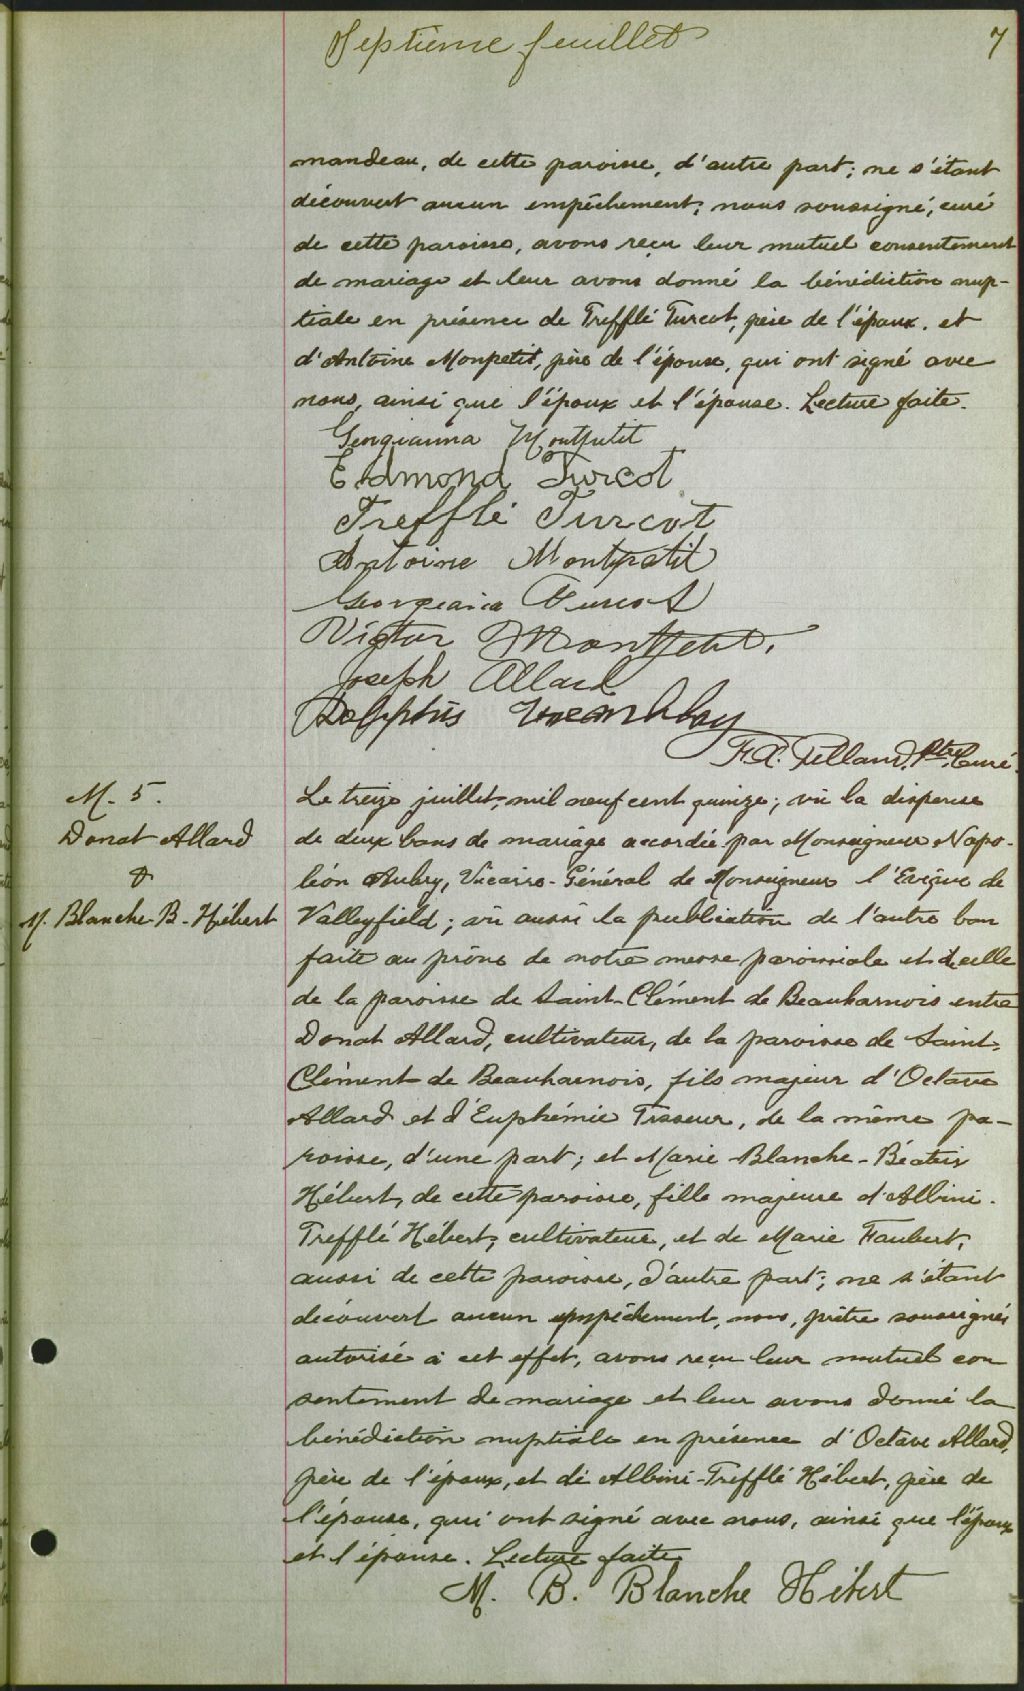 Septième feuillet
7
mandeau, de cette paroisse, d'autre part; ne s'étant
découvert aucun empêchement; nous soussigné, curé
de cette paroisse, avons reçu leur mutuel consentement
de mariage et leur avons donné la bénédiction nup-
tiale en présence de Trefflé Turcot, père de l'époux, et
d'Antoine Monpetit, père de l'épouse, qui ont signé avec
nous, ainsi que l'époux et l'épouse. Lecture faite.
Georgianna Montpetit
Edmond Turcot
Trefflé Turcot
Antoine Montpetit
Georgeana Turcot
Victor Montpetit.
Joseph Allard
Delphis
F.X. Pelland, Ptre Curé.
M. 5.
Donat Allard
&
M. Blanche-B-Hébert
Le treize juillet, mil neuf cent quinze; vu la dispense
de deux bans de mariage accordée par Monseigneur Napo-
léon Aubry, Vicaire-Général de Monseigneur l'Evêque de
Valleyfield; vu aussi la publication de l'autre ban
faite au prône de notre messe paroissiale et de celle
de la paroisse de Saint-Clément de Beauharnois entre
Donat Allard, cultivateur, de la paroisse de Saint-
Clément de Beauharnois, fils majeur d'Octave
Allard et d'Euphémie Tisseur, de la même pa-
roisse, d'une part; et Marie-Blanche-Béatrix
Hébert, de cette paroisse, fille majeure d'Albini-
Trefflé Hébert, cultivateur, et de Marie Faubert,
aussi de cette paroisse, d'autre part; ne s'étant
découvert aucun empêchement, nous, prêtre soussigné,
autorisé à cet effet, avons reçu leur mutuel con
sentement de mariage et leur avons donné la
bénédiction nuptiale en présence d'Octave Allard,
père de l'époux, et de Albini-Trefflé Hébert, père de
l'épouse, qui ont signé avec nous, ainsi que l'époux
et l'épouse. Lecture faite
M. B. Blanche Hébert